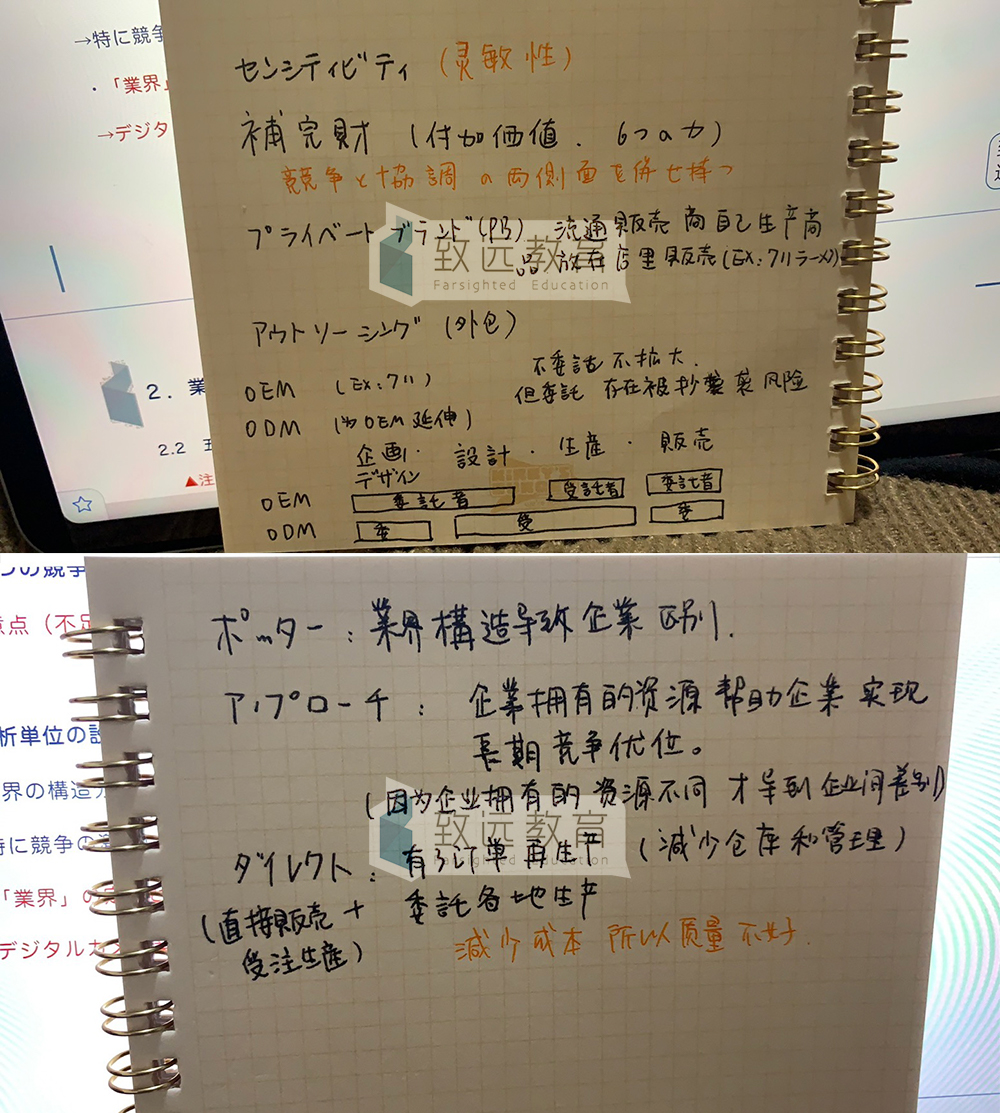 →特に競争
・「業界」
→デジタ
センシティビティ (灵敏性)
補完財 (付加価値. 6つの力)
競争と協調の両側面を併せ持つ
プライベートブランド(PB) 流通販売商自己生产商
品 放在店里販売(EX:711ラーメン)
致远教育
Farsighted Education
アウトソーシング (外包)
不委託不拡大.
OEM (EX:711) 但委託存在被抄袭风险
ODM (为OEM延伸)
企画・設計・生産・販売
デザイン
OEM 委託者 受託者 委託者
ODM 委 受 委
2. 業
2.2 五
▲注
つの競争
意点（不足
析単位の設
界の構造
特に競争の
「業界」の
デジタルカ
ポーター:業界構造导致企業区别.
アップローチ: 企業拥有的资源帮助企業实现
長期竞争优位。
(因为企业拥有的资源不同才导到企业间差别)
致远教育
Farsighted Education
ダイレクト: 有订单再生产 (減少仓库和管理)
(直接販売+ 委託各地生产
受注生産)
減少成本 所以质量不好.